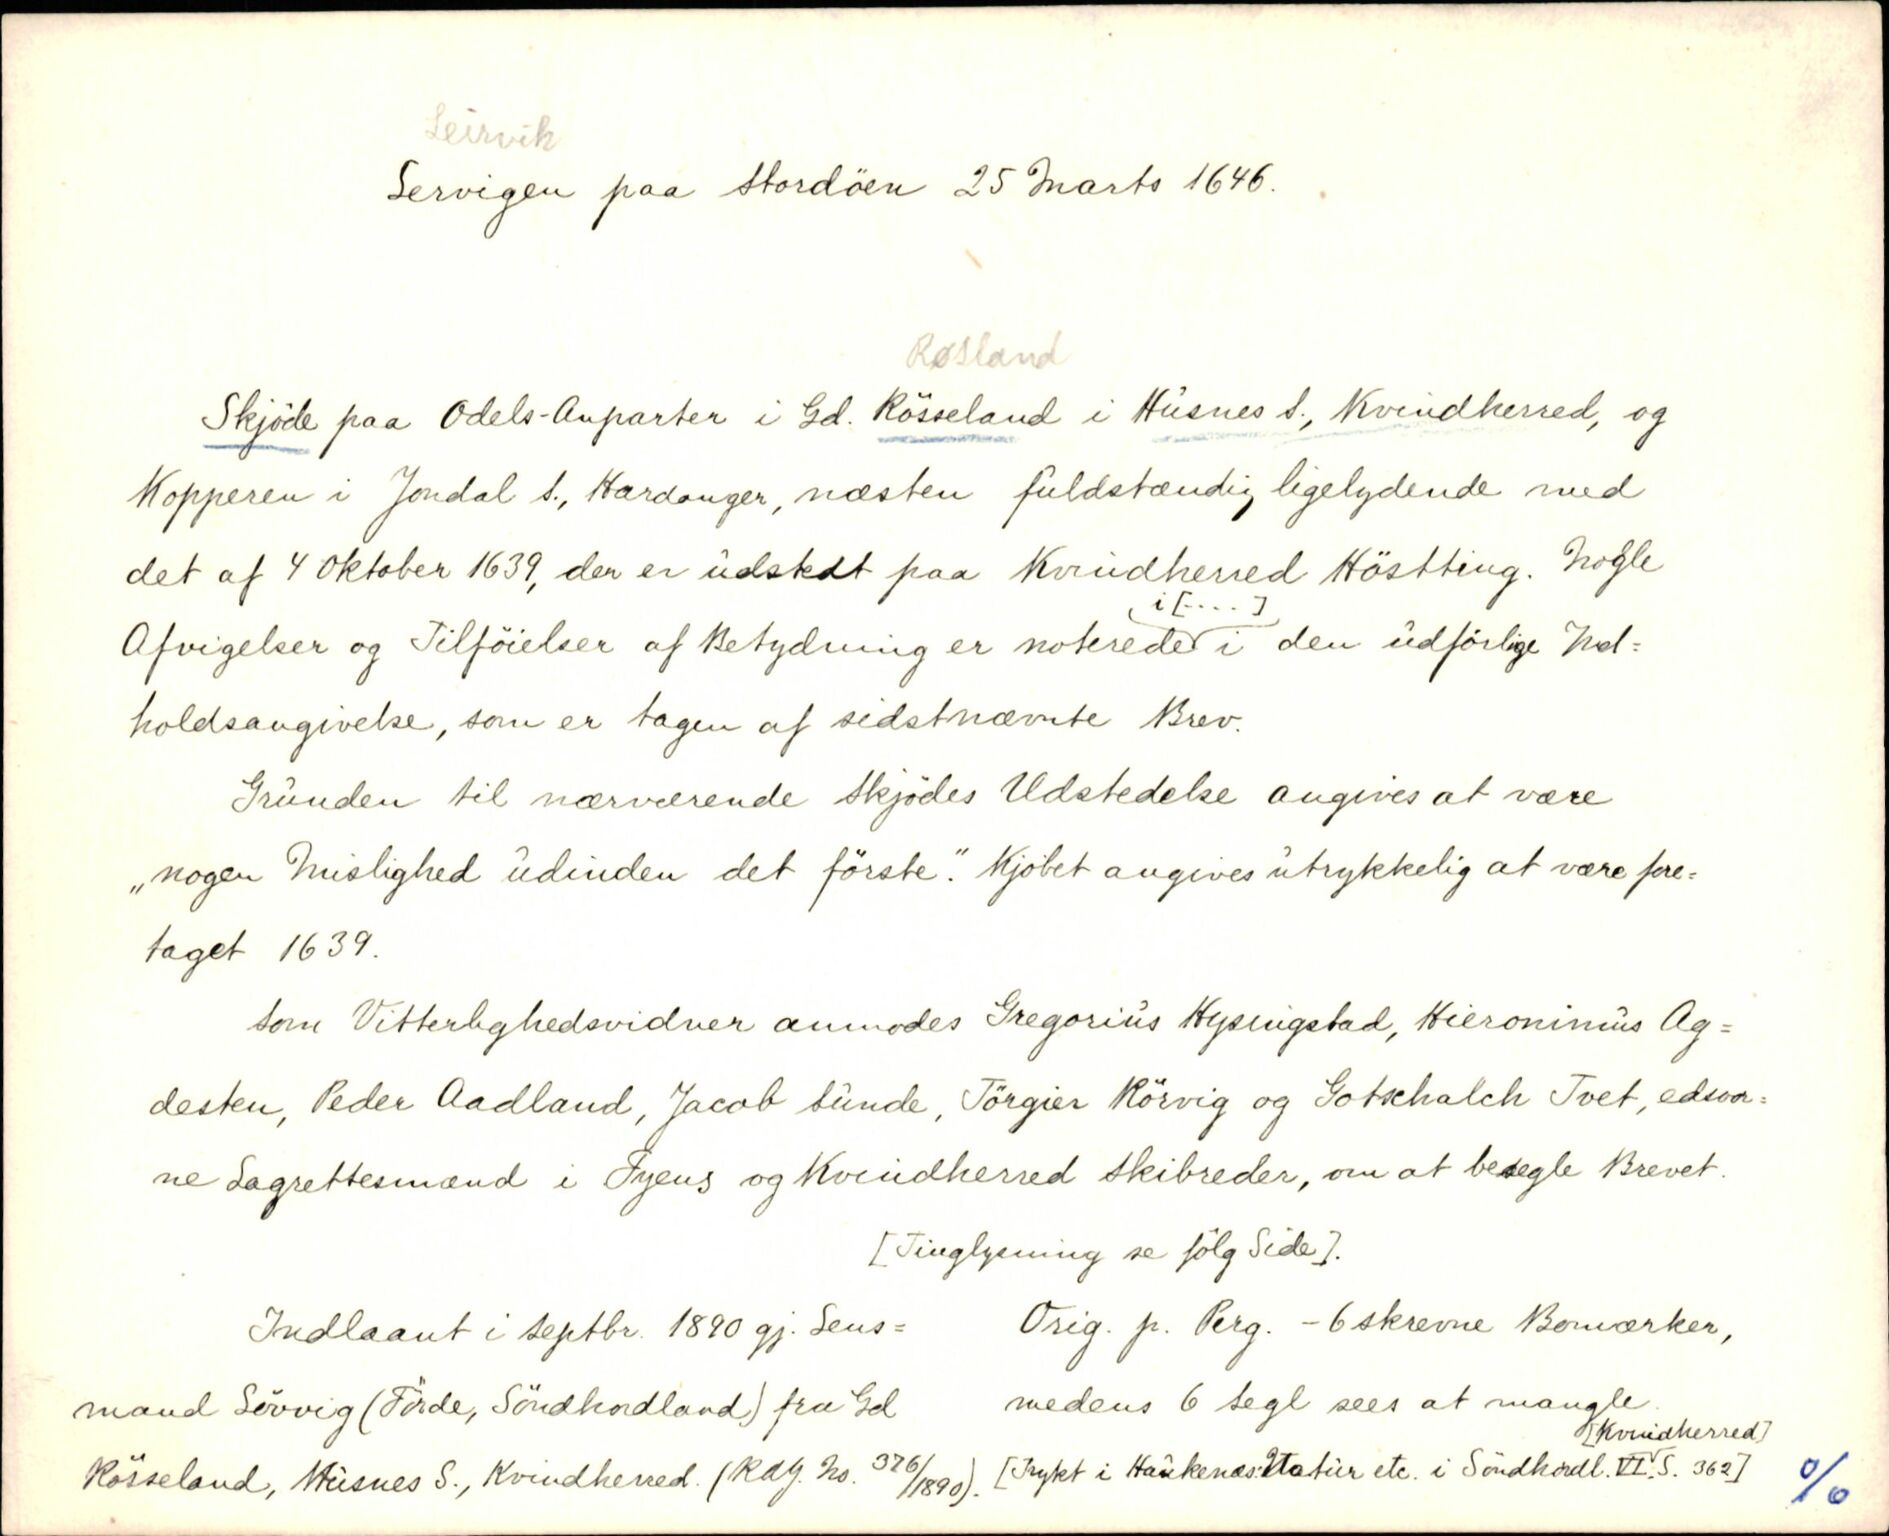 Leirvik
Lervigen paa Stordöen 25 Marts 1646.
Røsland
Skjöde paa Odels-Anparter i Gd. Rösseland i Húsnes S., Kvindherred, og
Kopperen i Jondal S., Hardanger, næsten fuldstændig ligelydende med
det af 4 Oktober 1639, der er udstedt paa Kvindherred Höstting. Nogle
i [....]
Afvigelser og Tilföielser af Betydning er noterede i den udförlige Ind=
holdsangivelse, som er tagen af sidstnævnte Brev.
Grunden til nærværende Skjödes Udstedelse angives at være
„nogen Mislighed udinden det förste." Kjöbet angives utrykkelig at være fore=
taget 1639.
Som Vitterlighedsvidner anmodes Gregorius Hysingstad, Hieronimus Ag=
desten, Peder Aadland, Jacob Sunde, Törgier Rörvig og Gotschalch Tvet, edsvor=
ne Lagrettesmænd i Fyens og Kvindherred Skibreder, om at besegle Brevet.
[Tinglysning se fölg Side].
Indlaant i Septbr. 1890 gj. Lens=
mand Lövvig (Förde, Söndhordland) fra Gd
Rösseland, Husnes S., Kvindherred. (RAJ. No. 376/1890).
Orig. p. Perg. - 6 skrevne Bomærker,
medens 6 Segl sees at mangle.
[Kvindherred]
[Trykt i Haukenæs: Natur etc. i Söndhordl. VI. S. 362]
%